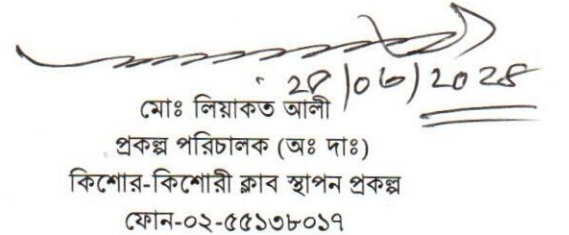 ২৪/০৬/২০২৪
মোঃ লিয়াকত আলী
প্রকল্প পরিচালক (অঃ দাঃ)
কিশোর-কিশোরী ক্লাব স্থাপন প্রকল্প
ফোন-০২-৫৫১৩৮০১৭